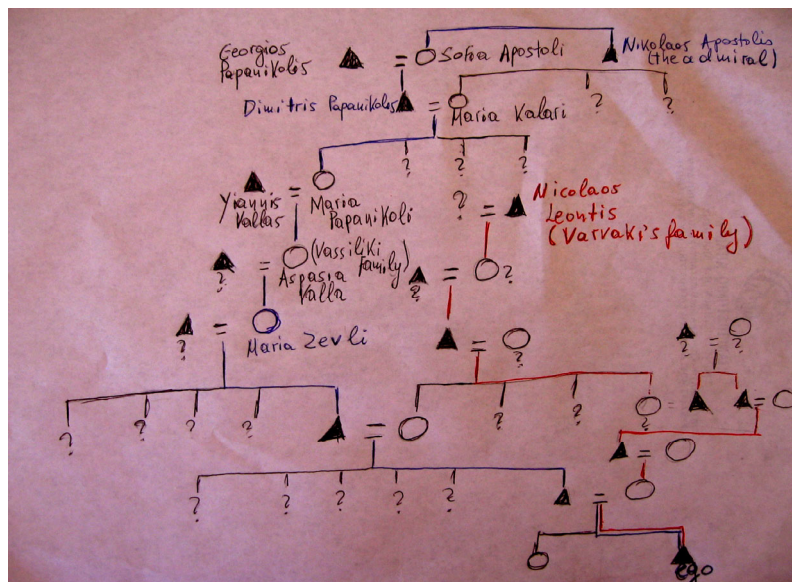 Georgios
Papanikolis
=
Sofia Apostoli
Nikolaos Apostolis
(the admiral)
Dimitris Papanikolis
=
Maria Kalari
?
?
?
?
?
Yiannis
Kallas
=
Maria
Papanikoli
?
=
Nicolaos
Leontis
(Varvaki's family)
?
=
(Vassiliki
family)
Aspasia
Valla
?
=
?
?
=
Maria Zevli
=
?
?
=
?
?
?
?
?
?
?
?
=
=
=
=
?
?
?
?
?
=
ego